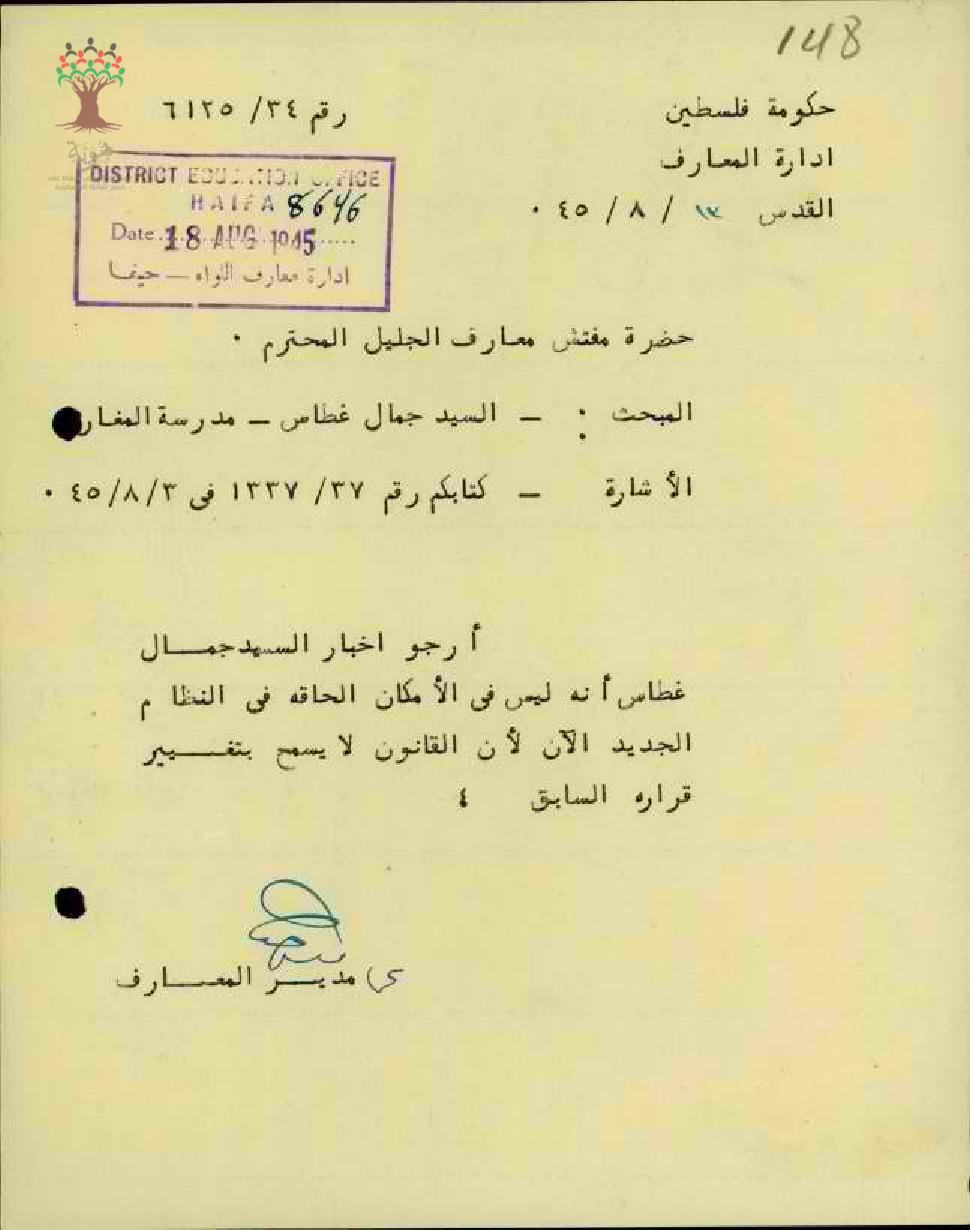 148
حكومة فلسطين
رقم ٣٤/ ٦١٢٥
ادارة المعارف
القدس ١٣ / ٨ / ٤٥ ٠
DISTRICT EDUCATION OFFICE
HAIFA 8646
Date 18 AUG 1945
ادارة معارف اللواء — حيفا
حضرة مفتش معارف الجليل المحترم ٠
المبحث : — السيد جمال غطاس — مدرسة المغار
الأشارة — كتابكم رقم ٣٧/ ١٣٣٧ فى ٤٥/٨/٣ ٠
أرجو اخبار السيد جمــال
غطاس أنه ليس فى الأمكان الحاقه فى النظام
الجديد الآن لأن القانون لا يسمح بتغــيير
قراره السابق ٤
مديــر المعــارف